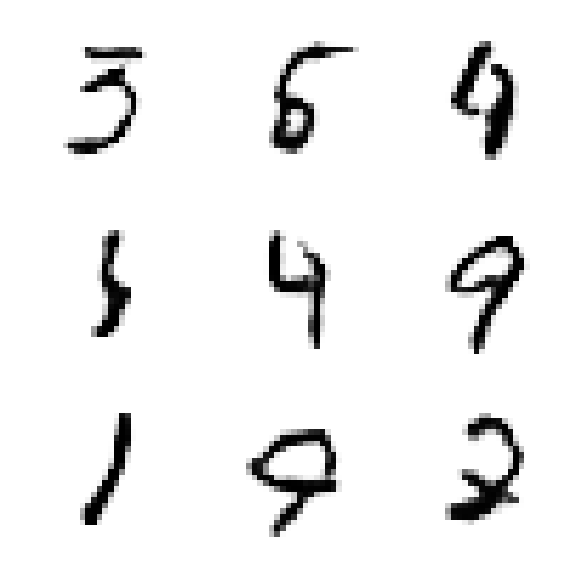 3 6 4
5 4 9
1 9 2